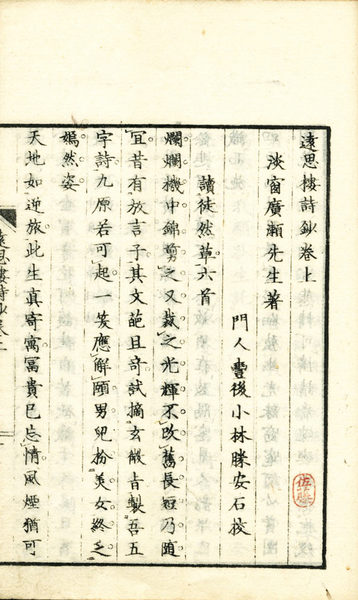 遠思樓詩鈔卷上
淡窗廣瀬先生著
門人 豐後小林勝安石校
讀徒然草六首
爛爛機中錦剪之又裁之光輝不改舊長短乃隨
宜昔有放言子其文葩且奇試摘玄微旨製吾五
字詩九原若可起一笑應解頤男兒扮美女終乏
嫣然姿
天地如逆旅此生真寄寓冨貴已忘情風煙猶可
遠思樓詩鈔卷上